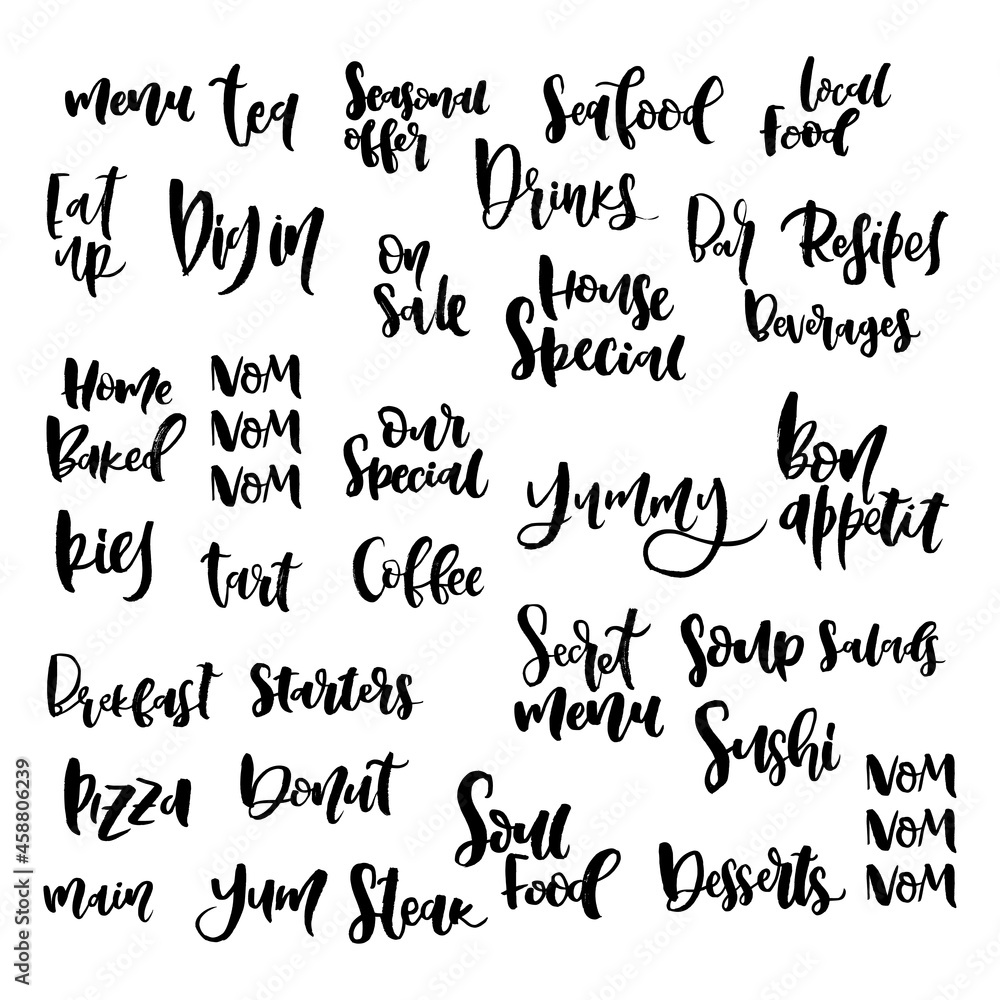 menu
tea
Seasonal
offer
Seafood
local
Food
Eat
up
Dig in
Drinks
Bar
Resipes
on
Sale
House
Special
Beverages
Home
Baked
NOM
NOM
NOM
our
Special
Yummy
bon
appetit
pies
tart
Coffee
Secret
menu
Soup
Salads
Brekfast
Starters
Sushi
Pizza
Donut
Soul
Food
NOM
NOM
NOM
main
yum
Steak
Desserts
Adobe Stock | #458806239
Adobe Stock